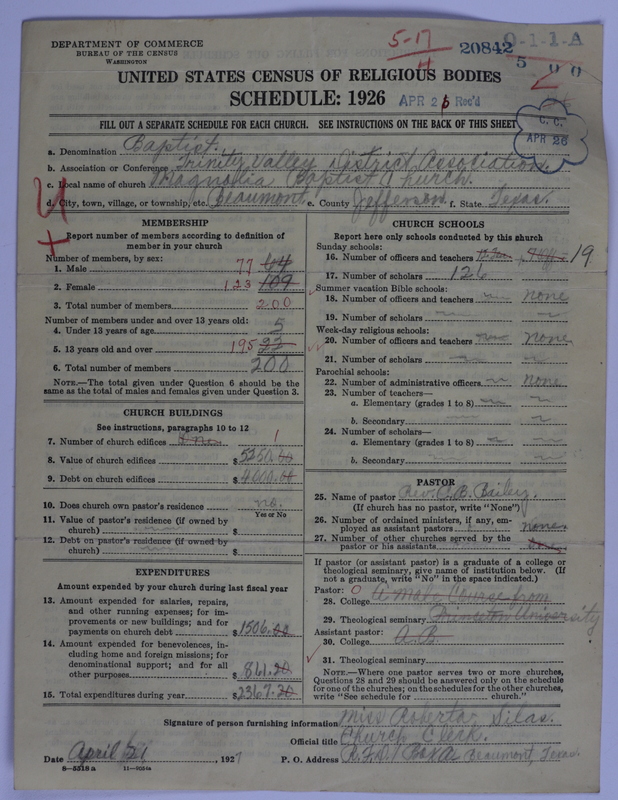 DEPARTMENT OF COMMERCE
BUREAU OF THE CENSUS
WASHINGTON
5-17
4
20842
0-1-1-A
5 00
UNITED STATES CENSUS OF RELIGIOUS BODIES
SCHEDULE: 1926
APR 26 Rec'd
FILL OUT A SEPARATE SCHEDULE FOR EACH CHURCH. SEE INSTRUCTIONS ON THE BACK OF THIS SHEET
C. C.
APR 26
a. Denomination Baptist.
b. Association or Conference Trinity Valley District Association
c. Local name of church Magnolia Baptist Church.
d. City, town, village, or township, etc. Beaumont. e. County Jefferson. f. State Texas.
MEMBERSHIP
Report number of members according to definition of
member in your church
Number of members, by sex:
1. Male 77 64
2. Female 123 109
3. Total number of members 200
Number of members under and over 13 years old:
4. Under 13 years of age 5
5. 13 years old and over 195
6. Total number of members 200
NOTE.—The total given under Question 6 should be the
same as the total of males and females given under Question 3.
CHURCH BUILDINGS
See instructions, paragraphs 10 to 12
7. Number of church edifices 1
8. Value of church edifices $5250.00
9. Debt on church edifices $4000.00
10. Does church own pastor's residence no.
Yes or No
11. Value of pastor's residence (if owned by
church) $
12. Debt on pastor's residence (if owned by
church) $
EXPENDITURES
Amount expended by your church during last fiscal year
13. Amount expended for salaries, repairs,
and other running expenses; for im-
provements or new buildings; and for
payments on church debt $1506.00
14. Amount expended for benevolences, in-
cluding home and foreign missions; for
denominational support; and for all
other purposes $861.20
15. Total expenditures during year $2367.20
CHURCH SCHOOLS
Report here only schools conducted by this church
Sunday schools:
16. Number of officers and teachers 19
17. Number of scholars 126
Summer vacation Bible schools:
18. Number of officers and teachers none
19. Number of scholars
Week-day religious schools:
20. Number of officers and teachers none
21. Number of scholars
Parochial schools:
22. Number of administrative officers none
23. Number of teachers—
a. Elementary (grades 1 to 8)
b. Secondary
24. Number of scholars—
a. Elementary (grades 1 to 8)
b. Secondary
PASTOR
25. Name of pastor Rev. O.B. Bailey.
(If church has no pastor, write "None")
26. Number of ordained ministers, if any, em-
ployed as assistant pastors none.
27. Number of other churches served by the
pastor or his assistants
If pastor (or assistant pastor) is a graduate of a college or
theological seminary, give name of institution below. (If
not a graduate, write "No" in the space indicated.)
Pastor: 0
28. College from
29. Theological seminary Princeton University
Assistant pastor:
30. College A.B.
31. Theological seminary
NOTE.—Where one pastor serves two or more churches,
Questions 28 and 29 should be answered only on the schedule
for one of the churches; on the schedules for the other churches,
write "See schedule for church."
Signature of person furnishing information Miss Roberta Silas.
Official title Church Clerk.
Date April 21, 1927 P. O. Address R.F.D. 1 Box A Beaumont, Texas
8-5518 a 11-9554a